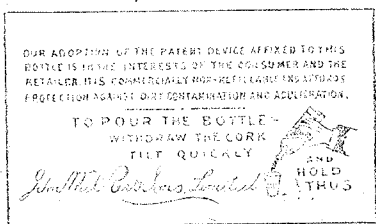 OUR ADOPTION OF THE PATENT DEVICE AFFIXED TO THIS
BOTTLE IS IN THE INTERESTS OF THE CONSUMER AND THE
RETAILER. IT IS COMMERCIALLY NON-REFILLABLE AND AFFORDS
PROTECTION AGAINST DIRT CONTAMINATION AND ADULTERATION.
TO POUR THE BOTTLE-
WITHDRAW THE CORK
TILT QUICKLY
AND
HOLD
THUS
Limited